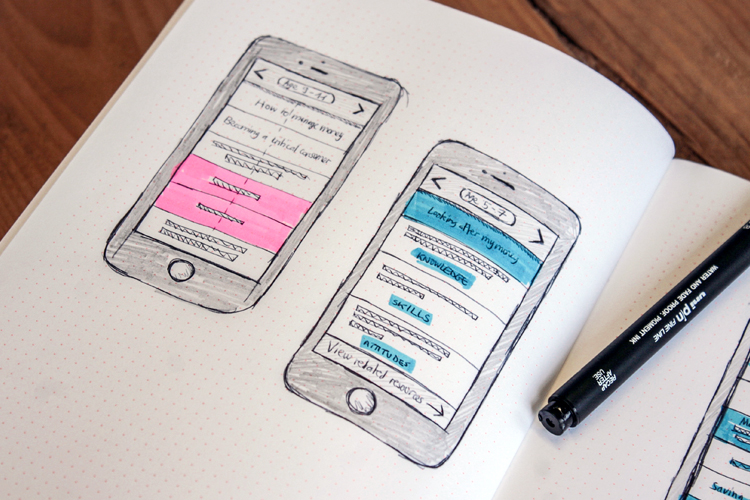 < Age 9-11 >
How to manage money
Becoming a critical consumer
< Age 5-7 >
Looking after my money
KNOWLEDGE
SKILLS
ATTITUDES
View related resources →
uni pin FINE LINE
WATER AND FADE PROOF, PIGMENT INK
RECAP
AFTER
USE
Saving